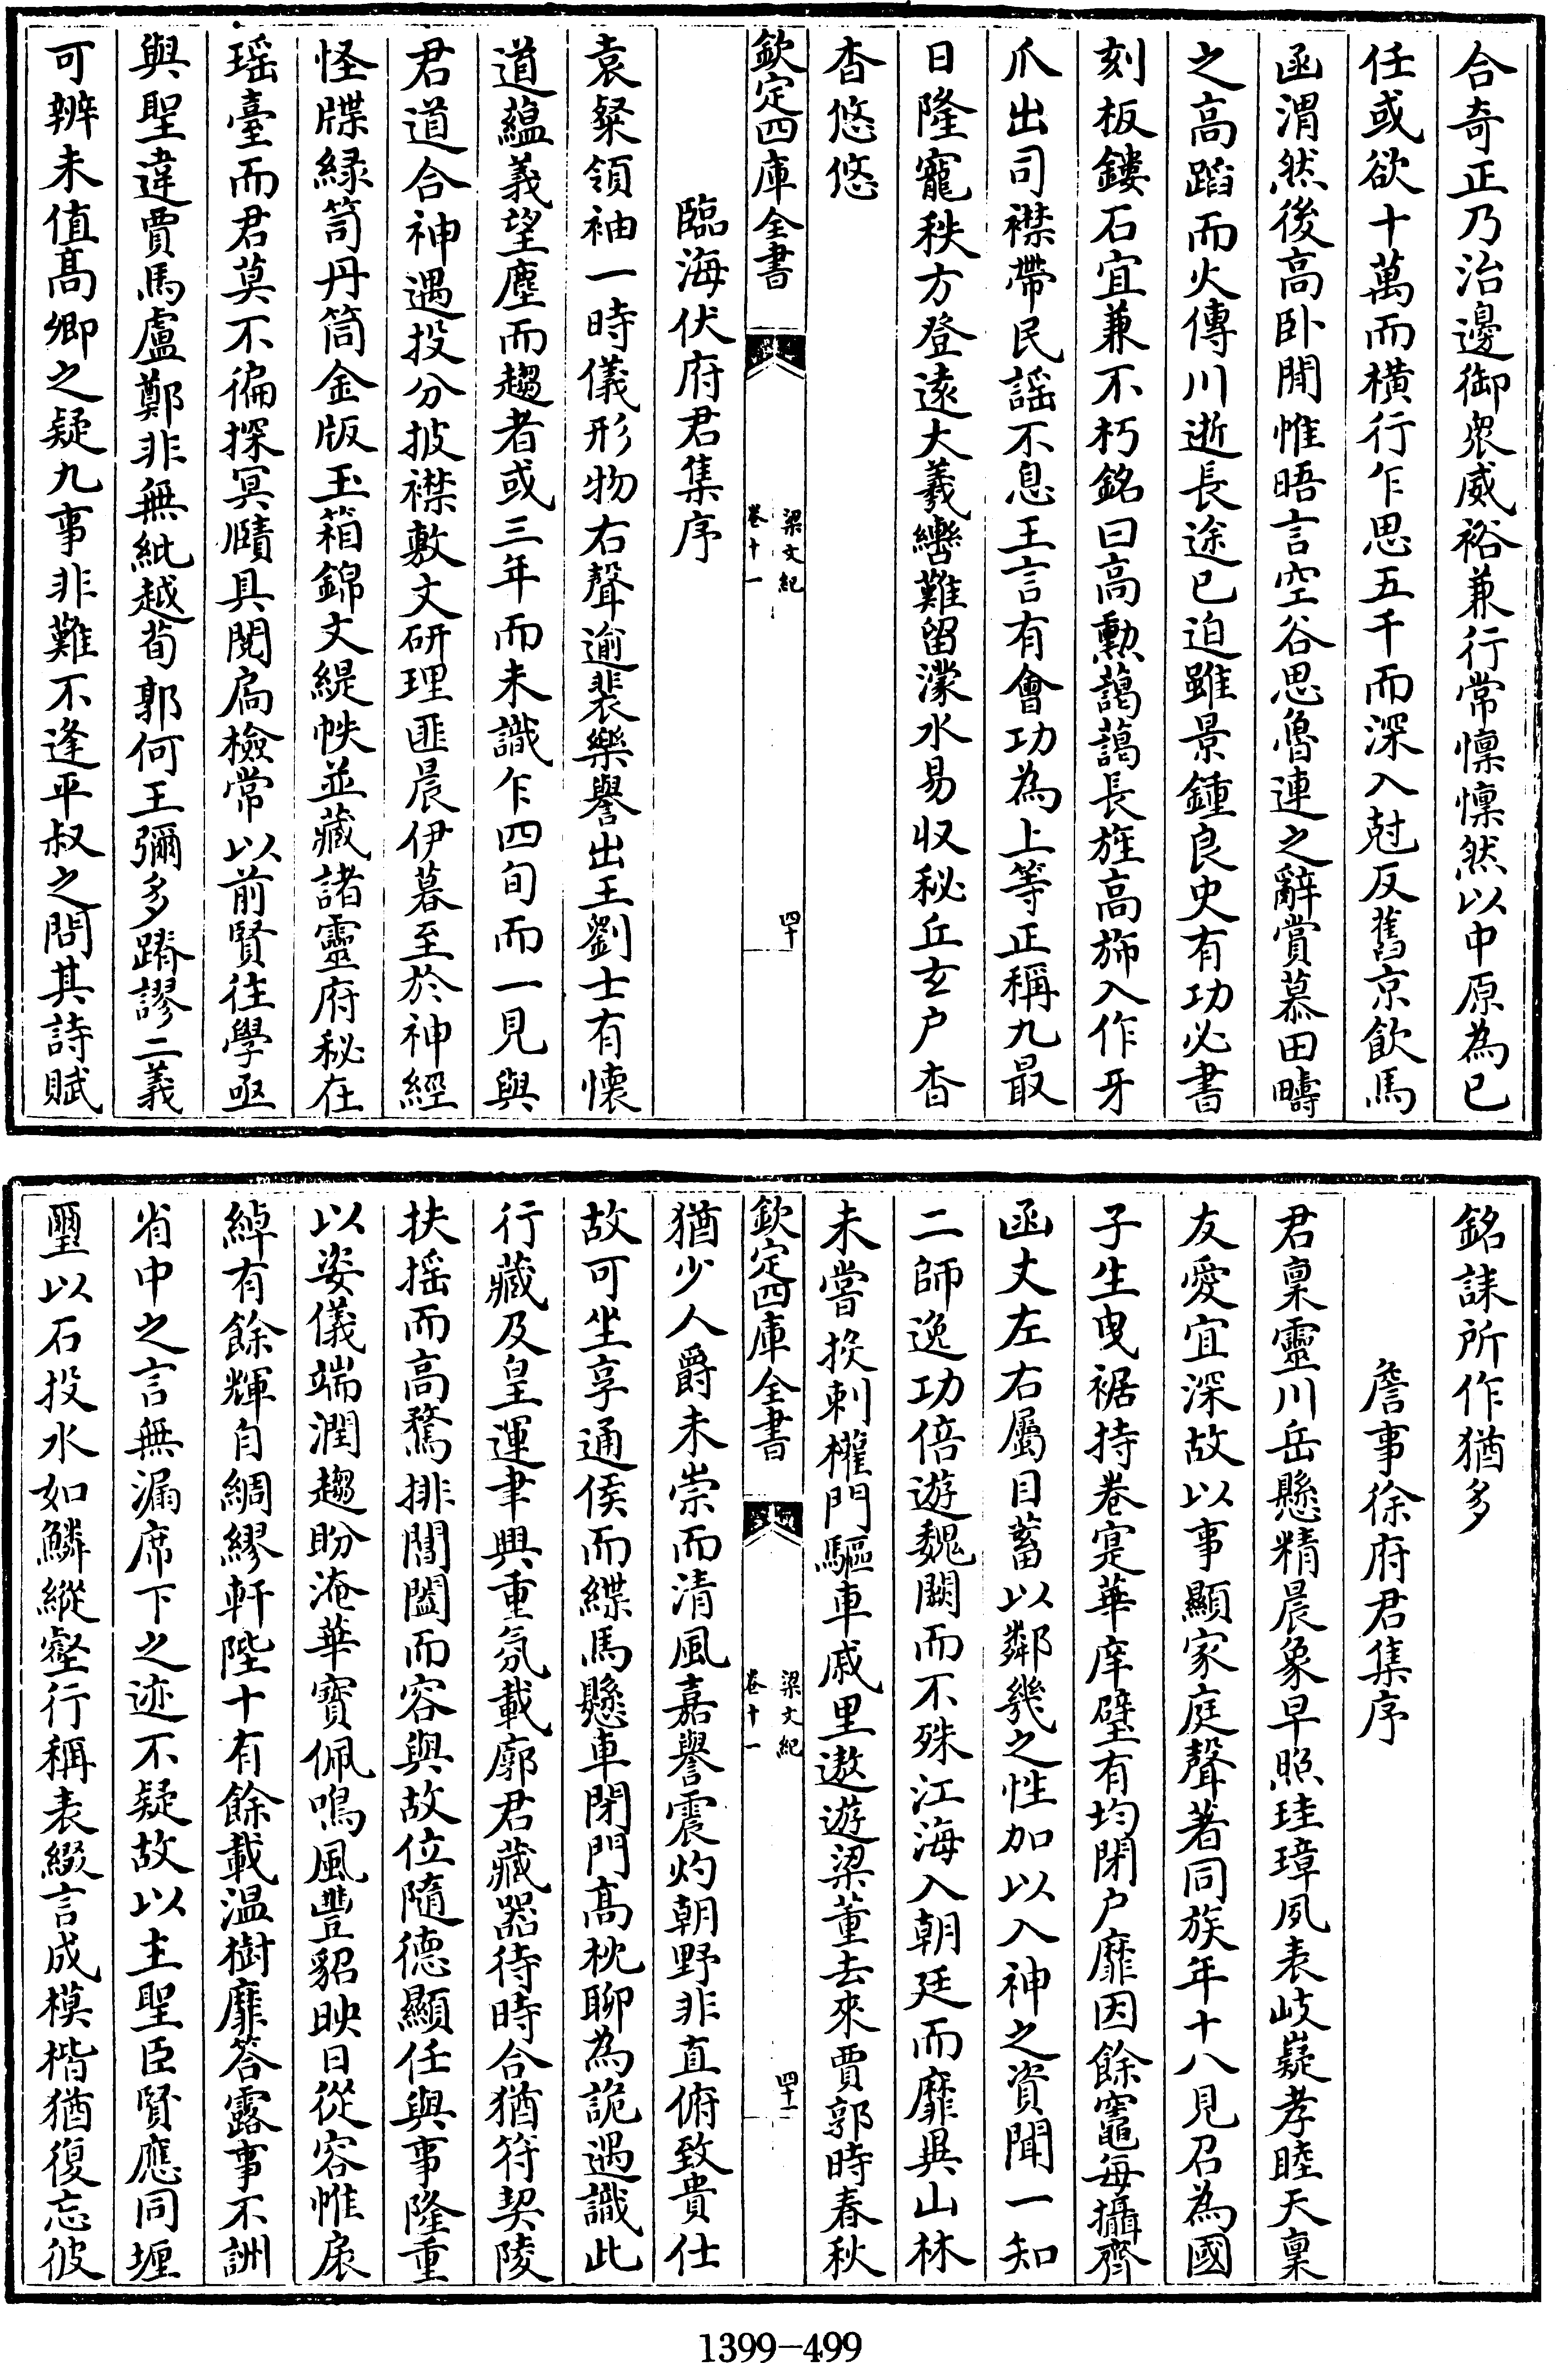 合奇正乃治邊御衆威裕兼行常懍懍然以中原為已
任或欲十萬而橫行乍思五千而深入尅反舊京飲馬
函渭然後高卧閒帷晤言空谷思魯連之辭賞慕田疇
之高蹈而火傳川逝長途已迫雖景鍾良史有功必書
刻板鏤石宜兼不朽銘曰高勲藹藹長旌高斾入作牙
爪出司襟帶民謡不息王言有會功為上等正稱九最
日隆寵秩方登遠大羲轡難留濛水易収秘丘玄户杳
杳悠悠
欽定四庫全書
梁文紀
卷十一
四十
臨海伏府君集序
袁粲領袖一時儀形物右聲逾裴樂譽出王劉士有懷
道蘊義望塵而趨者或三年而未識乍四旬而一見與
君道合神遇投分披襟敷文研理匪晨伊暮至於神經
怪牒緑笥丹筒金版玉箱錦文緹帙並藏諸靈府秘在
瑶臺而君莫不徧探冥賾具閲扄檢常以前賢往學亟
與聖違賈馬盧鄭非無紕越荀郭何王彌多踳謬二義
可辨未值髙卿之疑九事非難不逢平叔之問其詩賦
銘誄所作猶多
詹事徐府君集序
君稟靈川岳懸精晨象早照珪璋夙表岐嶷孝睦天稟
友愛宜深故以事顯家庭聲著同族年十八見召為國
子生曳裾持卷寔華庠壁有均閉户靡因餘竈每攝齊
函丈左右屬目蓄以鄰幾之性加以入神之資聞一知
二師逸功倍遊魏闕而不殊江海入朝廷而靡異山林
未嘗投刺權門驅車戚里遨遊梁董去來賈郭時春秋
欽定四庫全書
梁文紀
卷十一
四十一
猶少人爵未崇而清風嘉譽震灼朝野非直俯致貴仕
故可坐享通侯而緤馬懸車閉門髙枕聊為詭遇識此
行藏及皇運聿興重氛載廓君藏器待時合猶符契陵
扶揺而高騖排閶闔而容與故位隨德顯任與事隆重
以姿儀端潤趨盼淹華寶佩鳴風豐貂映日從容帷扆
綽有餘輝自綢繆軒陛十有餘載温樹靡答露事不詶
省中之言無漏席下之迹不疑故以主聖臣賢應同堙
璽以石投水如鱗縱壑行稱表綴言成模楷猶復忘彼
1399-499